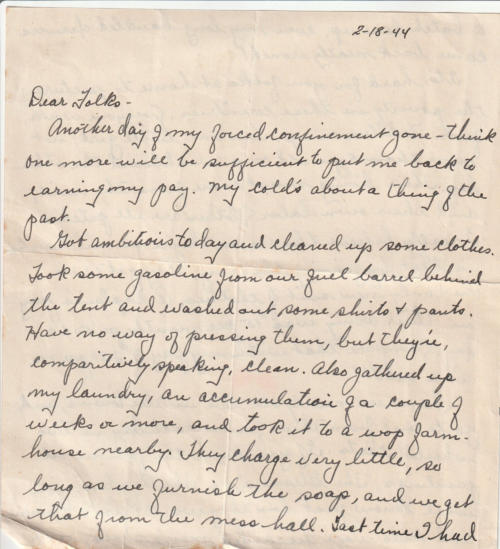 2-18-44
Dear Folks -
Another day of my forced confinement gone - think
one more will be sufficient to put me back to
earning my pay. My cold's about a thing of the
past.
Got ambitious today and cleaned up some clothes.
Took some gasoline from our fuel barrel behind
the tent and washed out some shirts & pants.
Have no way of pressing them, but they're,
comparitively speaking, clean. Also gathered up
my laundry, an accumulation of a couple of
weeks or more, and took it to a wop farm-
house nearby. They charge very little, so
long as we furnish the soap, and we get
that from the mess hall. Last time I had